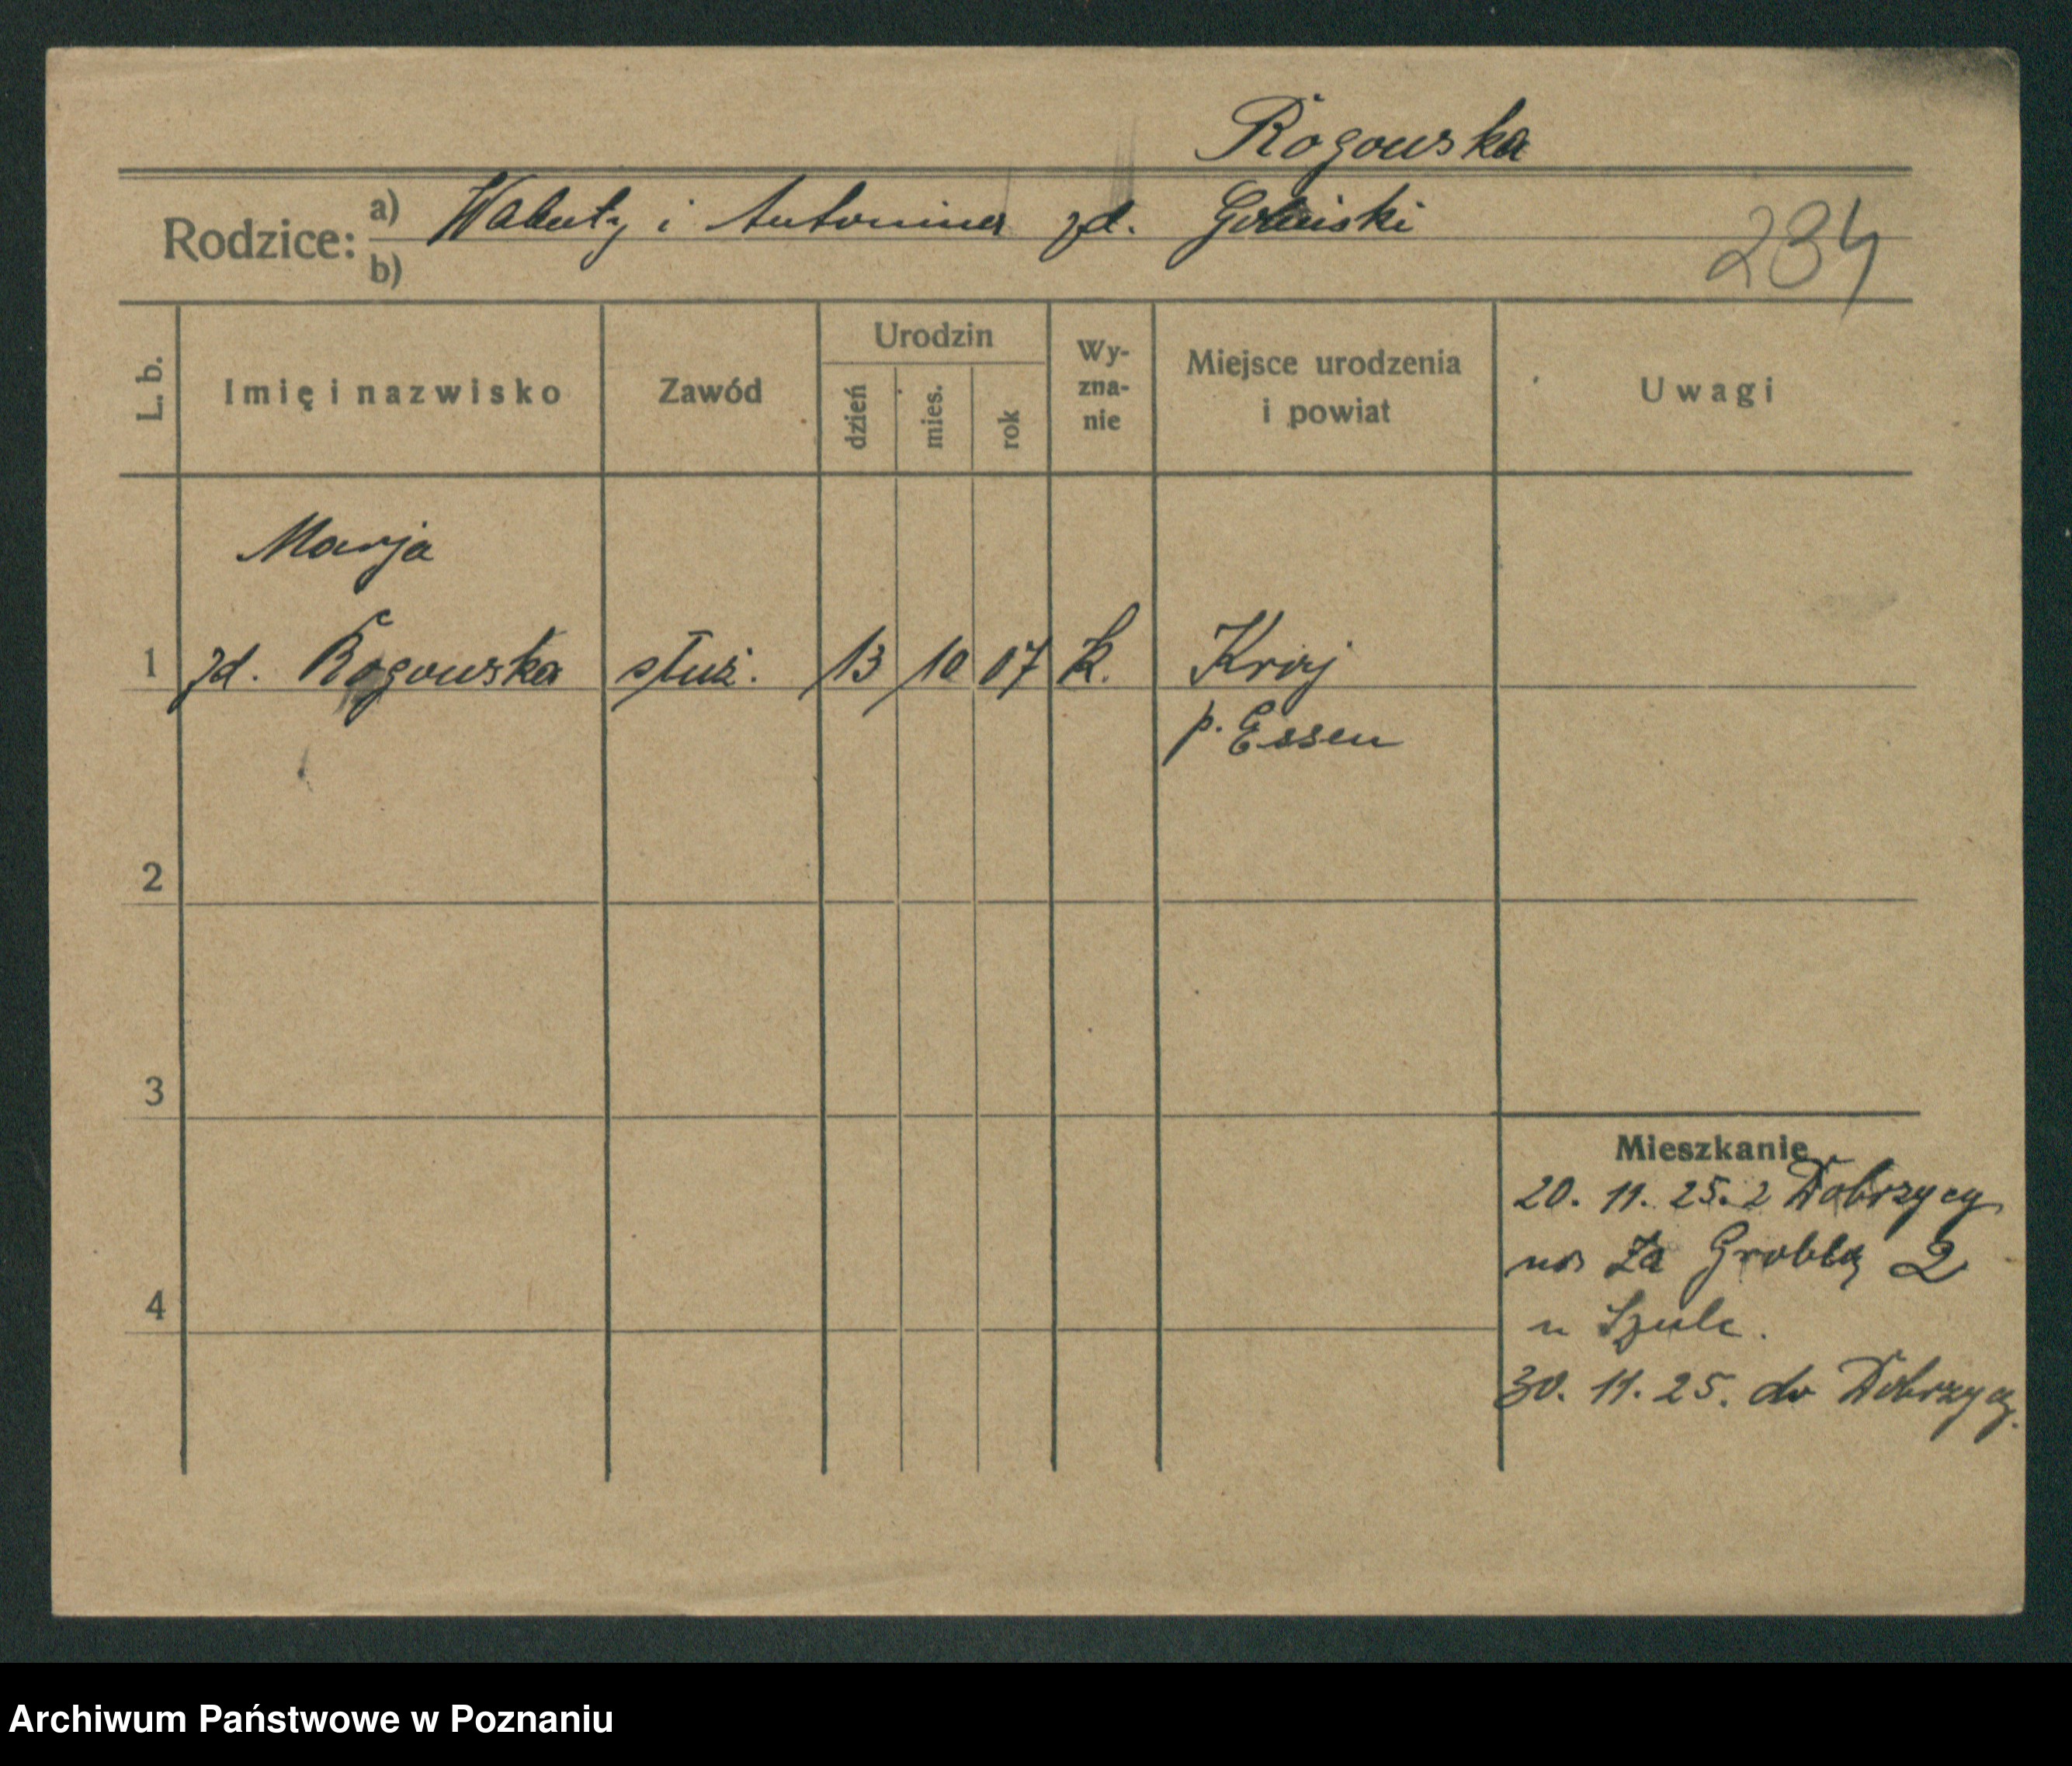 Rogowska
Rodzice: a) Walenty i Antonina zd. Goliński
b)
234
L. b. Imię i nazwisko Zawód Urodzin dzień mies. rok Wyznanie Miejsce urodzenia i powiat Uwagi
Marja
1 zd. Rogowska służ. 13 10 07 k. Kray
p. Essen
2
3
Mieszkanie
20. 11. 25. z Dobrzycy
na Za Groblą 2
4
u Szulc.
30. 11. 25. do Dobrzycy.
Archiwum Państwowe w Poznaniu